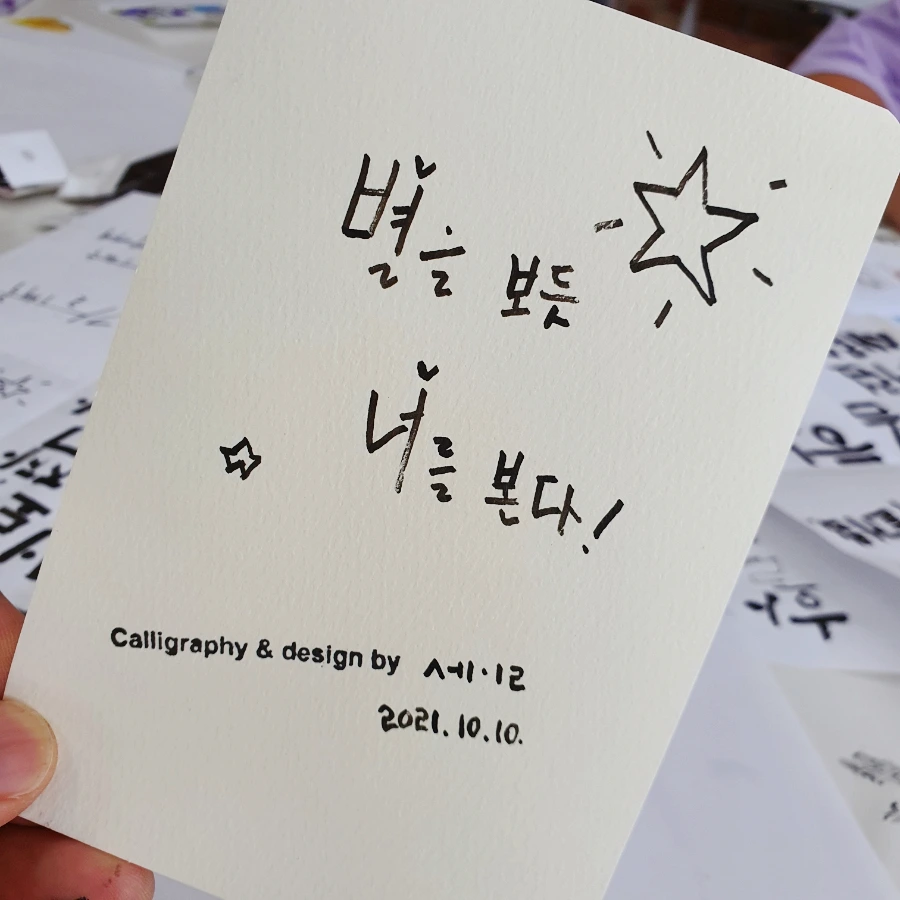 별을 보듯
너를 본다!
Calligraphy & design by 세·12
2021.10.10.